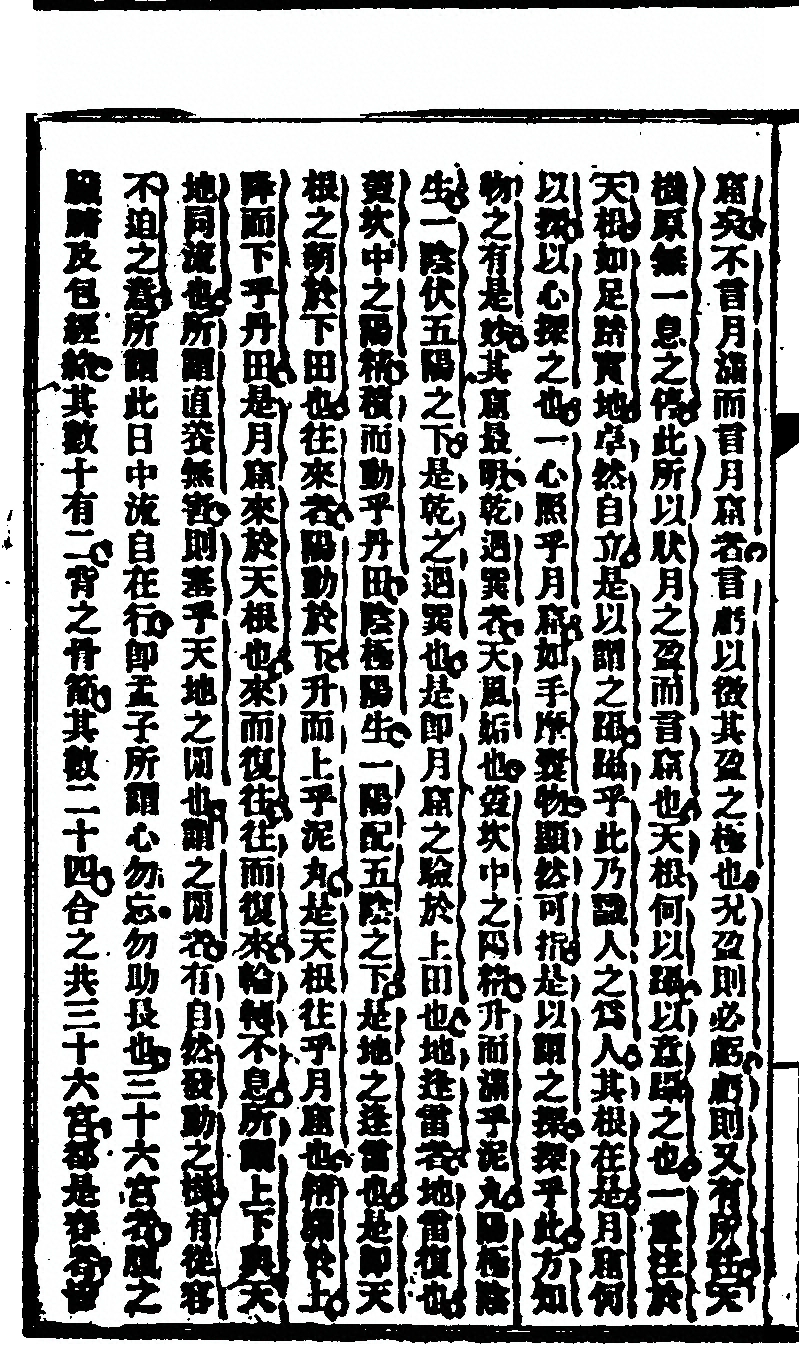 窟矣不言月滿而言月窟者言虧以徵其盈之極也況盈則必虧虧則又有所往天
機原無一息之停此所以狀月之盈而言窟也天根何以躡以意躡之也一意注於
天根如足踏實地卓然自立是以謂之躡躡乎此乃識人之爲人其根在是月窟何
以探以心探之也一心照乎月窟如手摩囊物顯然可指是以謂之探探乎此方知
物之有是妙其窟最明乾遇巽者天風姤也蓋坎中之陽精升而滿乎泥丸陽極陰
生一陰伏五陽之下是乾之遇巽也是卽月窟之驗於上田也地逢雷者地雷復也
蓋坎中之陽精積而動乎丹田陰極陽生一陽配五陰之下是地之逢雷也是卽天
根之萌於下田也往來者陽動於下升而上乎泥丸是天根往乎月窟也精滿於上
降而下乎丹田是月窟來於天根也來而復往往而復來輪轉不息所謂上下與天
地同流也所謂直養無害則塞乎天地之閒也謂之閒者有自然發動之機有從容
不迫之意所謂此日中流自在行卽孟子所謂心勿忘勿助長也三十六宮者臟之
臟腑及包經絡其數十有二背之骨節其數二十四合之共三十六宮都是春者皆